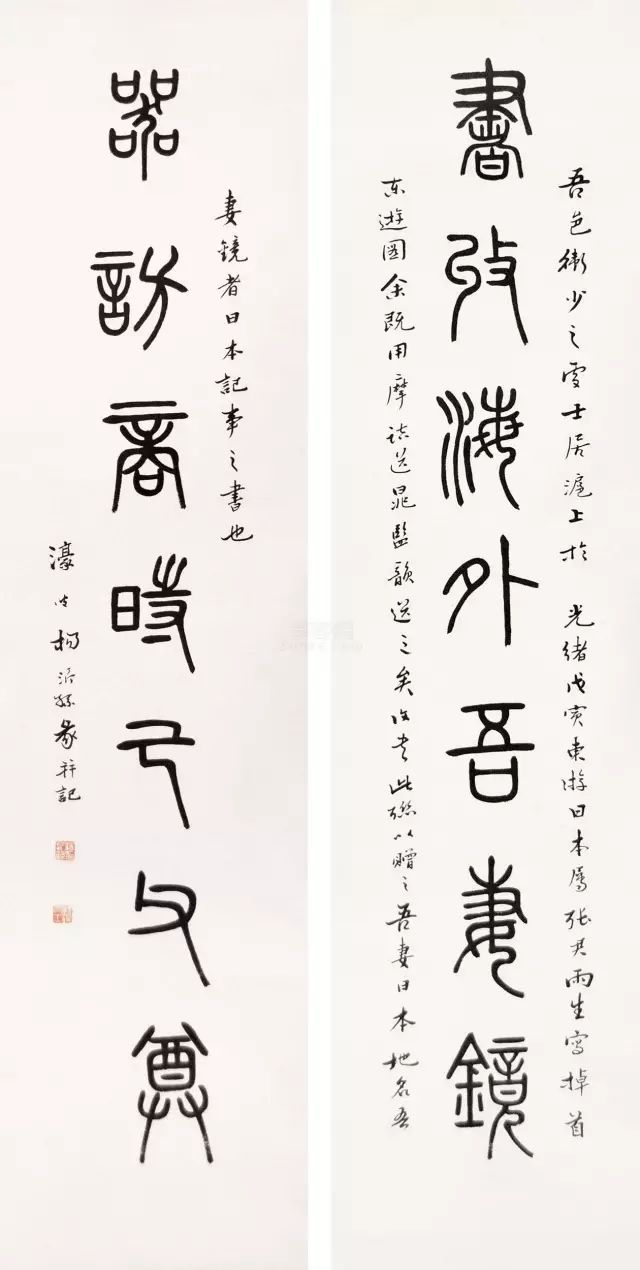 吾邑衛少之處士居滬上於 光緒戊寅東游日本屬張君雨生寫掉首
書攷海外吾妻鏡
東遊圖余既用摩詰送晁監韻送之矣書此聯以贈之吾妻日本地名吾
妻鏡者日本記事之書也
器訪商時父尊
濠叟楊沂孫篆并記